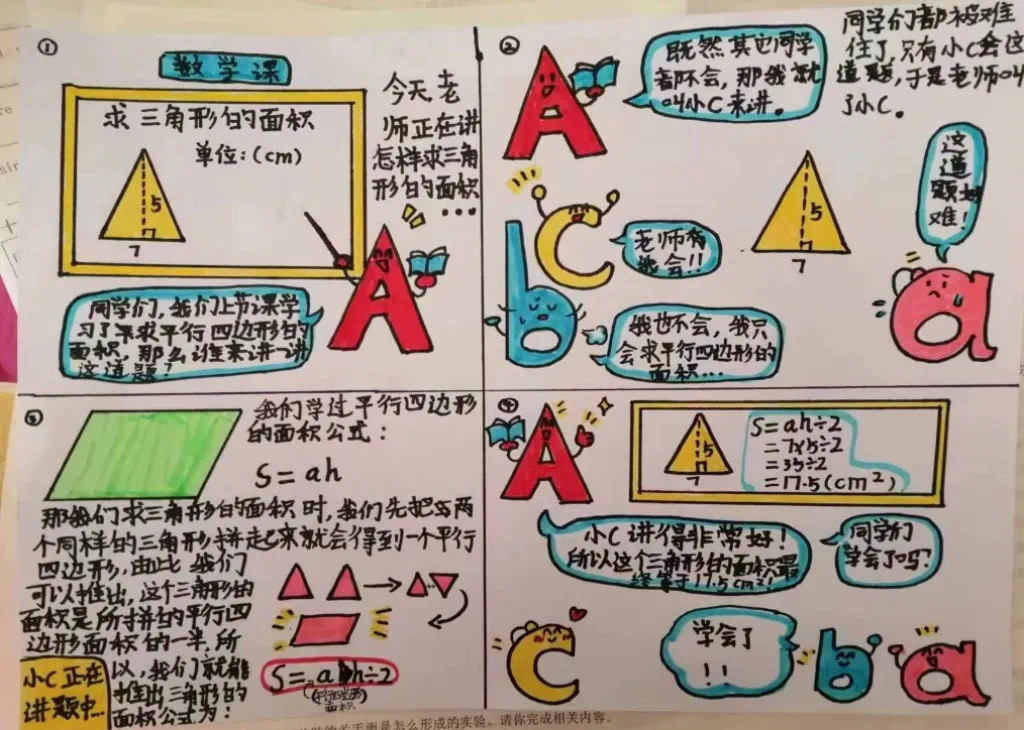 ①
数学课
求三角形的面积
单位:(cm)
5
7
今天老
师正在讲
怎样求三角
形的面积
...
同学们,我们上节课学
习了求平行四边形的
面积,那么谁来讲一讲
这道题?
②
既然其它同学
都不会,那我就
叫小C来讲。
同学们都被难
住了,只有小C会这
道题,于是老师叫
了小C。
这
道
题好
难!
5
7
老师
我会!!
我也不会,我只
会求平行四边形的
面积...
③
我们学过平行四边形
的面积公式:
S=ah
那我们求三角形的面积时,我们先把两
个同样的三角形拼起来就会得到一个平行
四边形,由此我们
可以推出,这个三角形的
面积是所拼的平行四
边形面积的一半.所
以,我们就能
推出三角形的
面积公式为:
S=ah÷2
面积
小C正在
讲题中...
④
5
7
S=ah÷2
=7×5÷2
=35÷2
=17.5(cm²)
小C讲得非常好!
所以这个三角形的面积最
终等于17.5cm²!
同学们
学会了吗?
学会了
!!
是怎么形成的实验。请你完成相关内容。